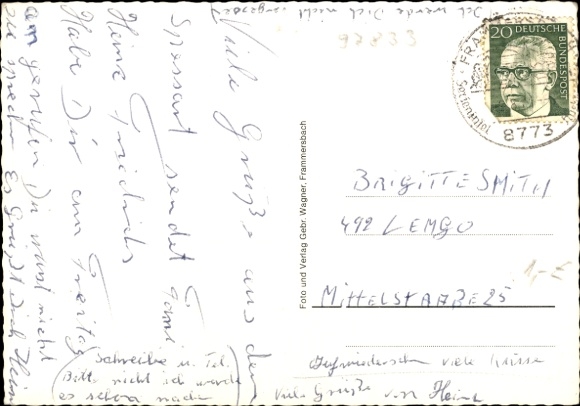 Ich werde Dich nicht
97833
Viele Grüße aus dem
Spessart sendet Fami
Heinz Friedrichs
Habe Dir am Freitag
angerufen Du warst nicht
zu sprechen Es Grüßt Dich Heinz
(Schreibe u. Tel.
Bitte nicht ich werde
es schon machen
Foto und Verlag Gebr. Wagner, Frammersbach
20 DEUTSCHE
BUNDESPOST
FRA
8773
BRIGITTE SMITH
492 LEMGO
MITTELSTRAßE 25
1,- €
Aufwiedersehn viele Küsse
Viele Grüße von Heinz